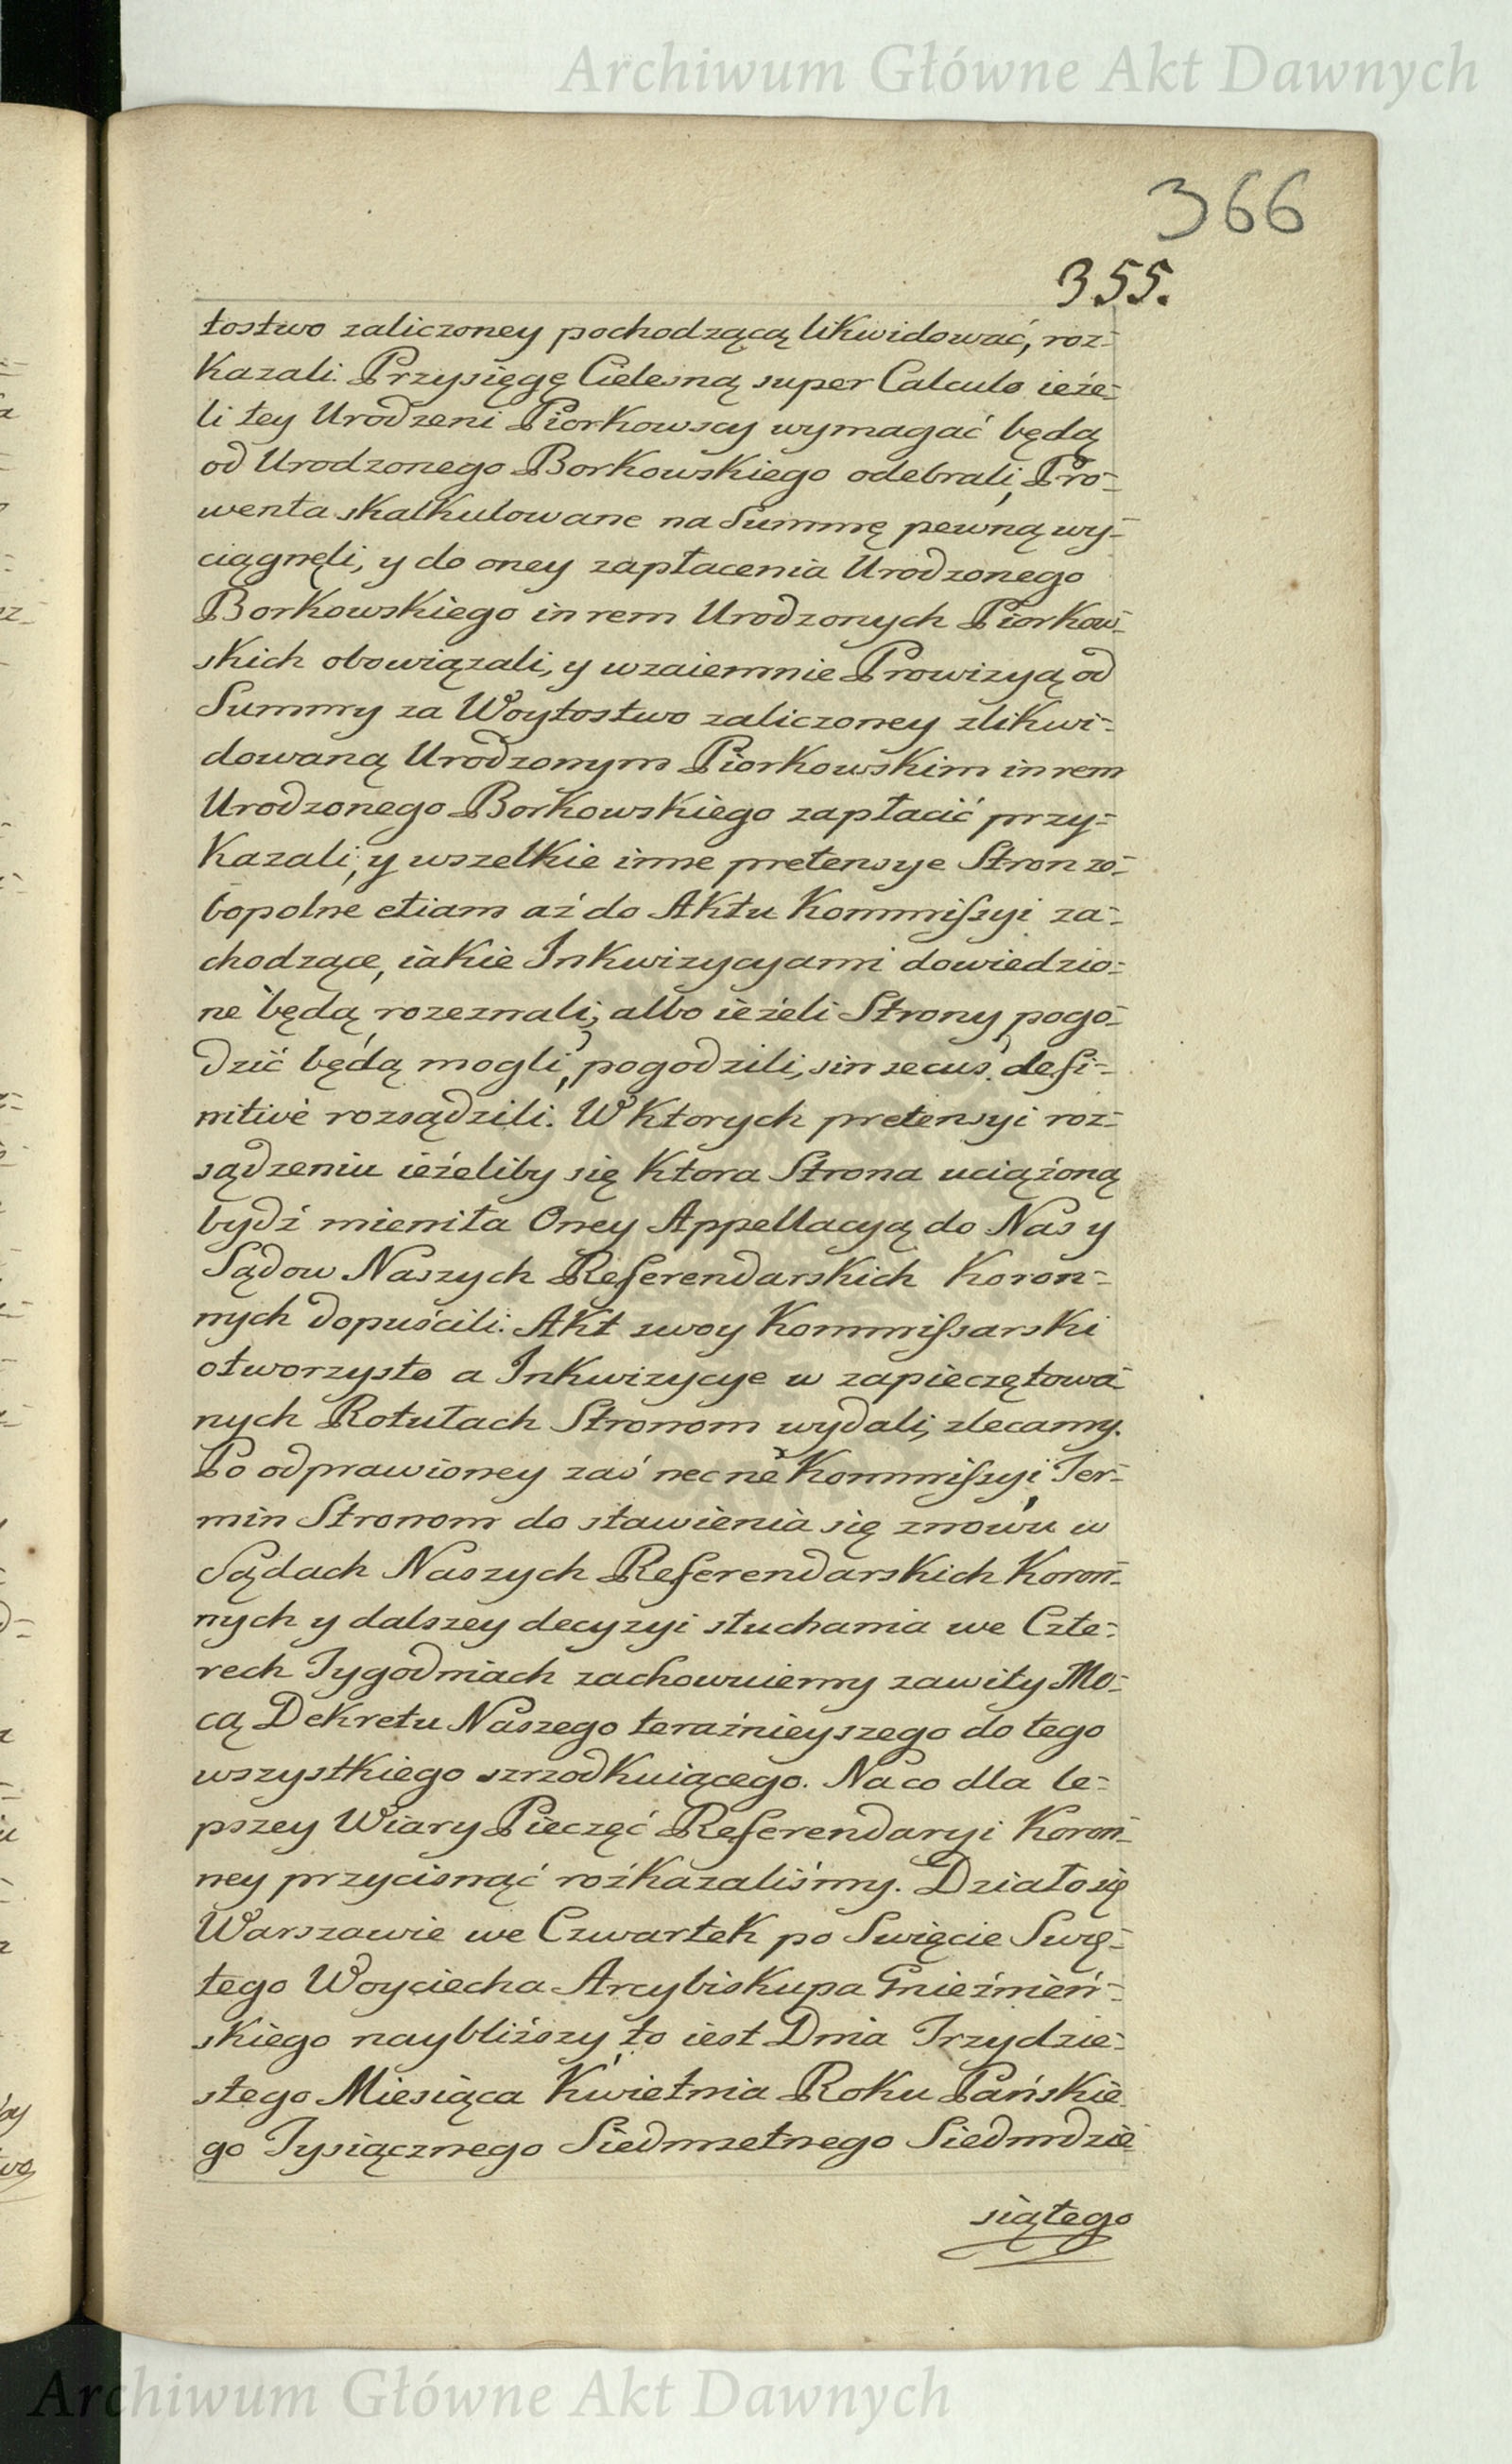 Archiwum Główne Akt Dawnych
366
355.
tostwo zaliczoney pochodzącą likwidować, roz=
kazali. Przysięgę Cielesną super Calculo ieże=
li tey Urodzeni Piorkowscy wymagać będą
od Urodzonego Borkowskiego odebrali, Pro=
wenta skalkulowane na Summę pewną wy=
ciągnęli, y do oney zapłacenia Urodzonego
Borkowskiego in rem Urodzonych Piorkow=
skich obowiązali, y wzaiemnie Prowizyą od
Summy za Woytostwo zaliczoney zlikwi=
dowaną Urodzonym Piorkowskim in rem
Urodzonego Borkowskiego zapłacić przy=
kazali, y wszelkie inne pretensye Stron zo=
bopolne etiam aż do Aktu Kommissyi za=
chodzące, iakie Inkwizycyami dowiedzio=
ne będą rozeznali, albo ieżeli Strony pogo=
dzić będą mogli, pogodzili, sin secus defi=
nitivè rozsądzili. W ktorych pretensyi roz=
sądzeniu ieżeliby się ktora Strona uciążoną
bydź mieniła Oney Appellacyą do Nas y
Sądow Naszych Referendarskich Koron=
nych dopuścili. Akt swoy Kommissarski
otworzysto a Inkwizycye w zapieczętowa=
nych Rotułach Stronom wydali, zlecamy.
Po odprawioney zaś nec ne Kommissyi, Ter=
min Stronom do stawienia się znowu w
Sądach Naszych Referendarskich Koron=
nych y dalszey decyzyi słuchania we Czte=
rech Tygodniach zachowuiemy zawity Mo=
cą Dekretu Naszego teraźnieyszego do tego
wszystkiego szrzodkuiącego. Na co dla le=
pszey Wiary Pieczęć Referendaryi Koron=
ney przycisnąć rożkazaliśmy. Działo się
Warszawie we Czwartek po Swięcie Swię=
tego Woyciecha Arcybiskupa Gnieźnień=
skiego naybliższy to iest Dnia Trzydzie=
stego Miesiąca Kwietnia Roku Pańskie
go Tysiącznego Siedmsetnego Siedmdzie
siątego
Archiwum Główne Akt Dawnych